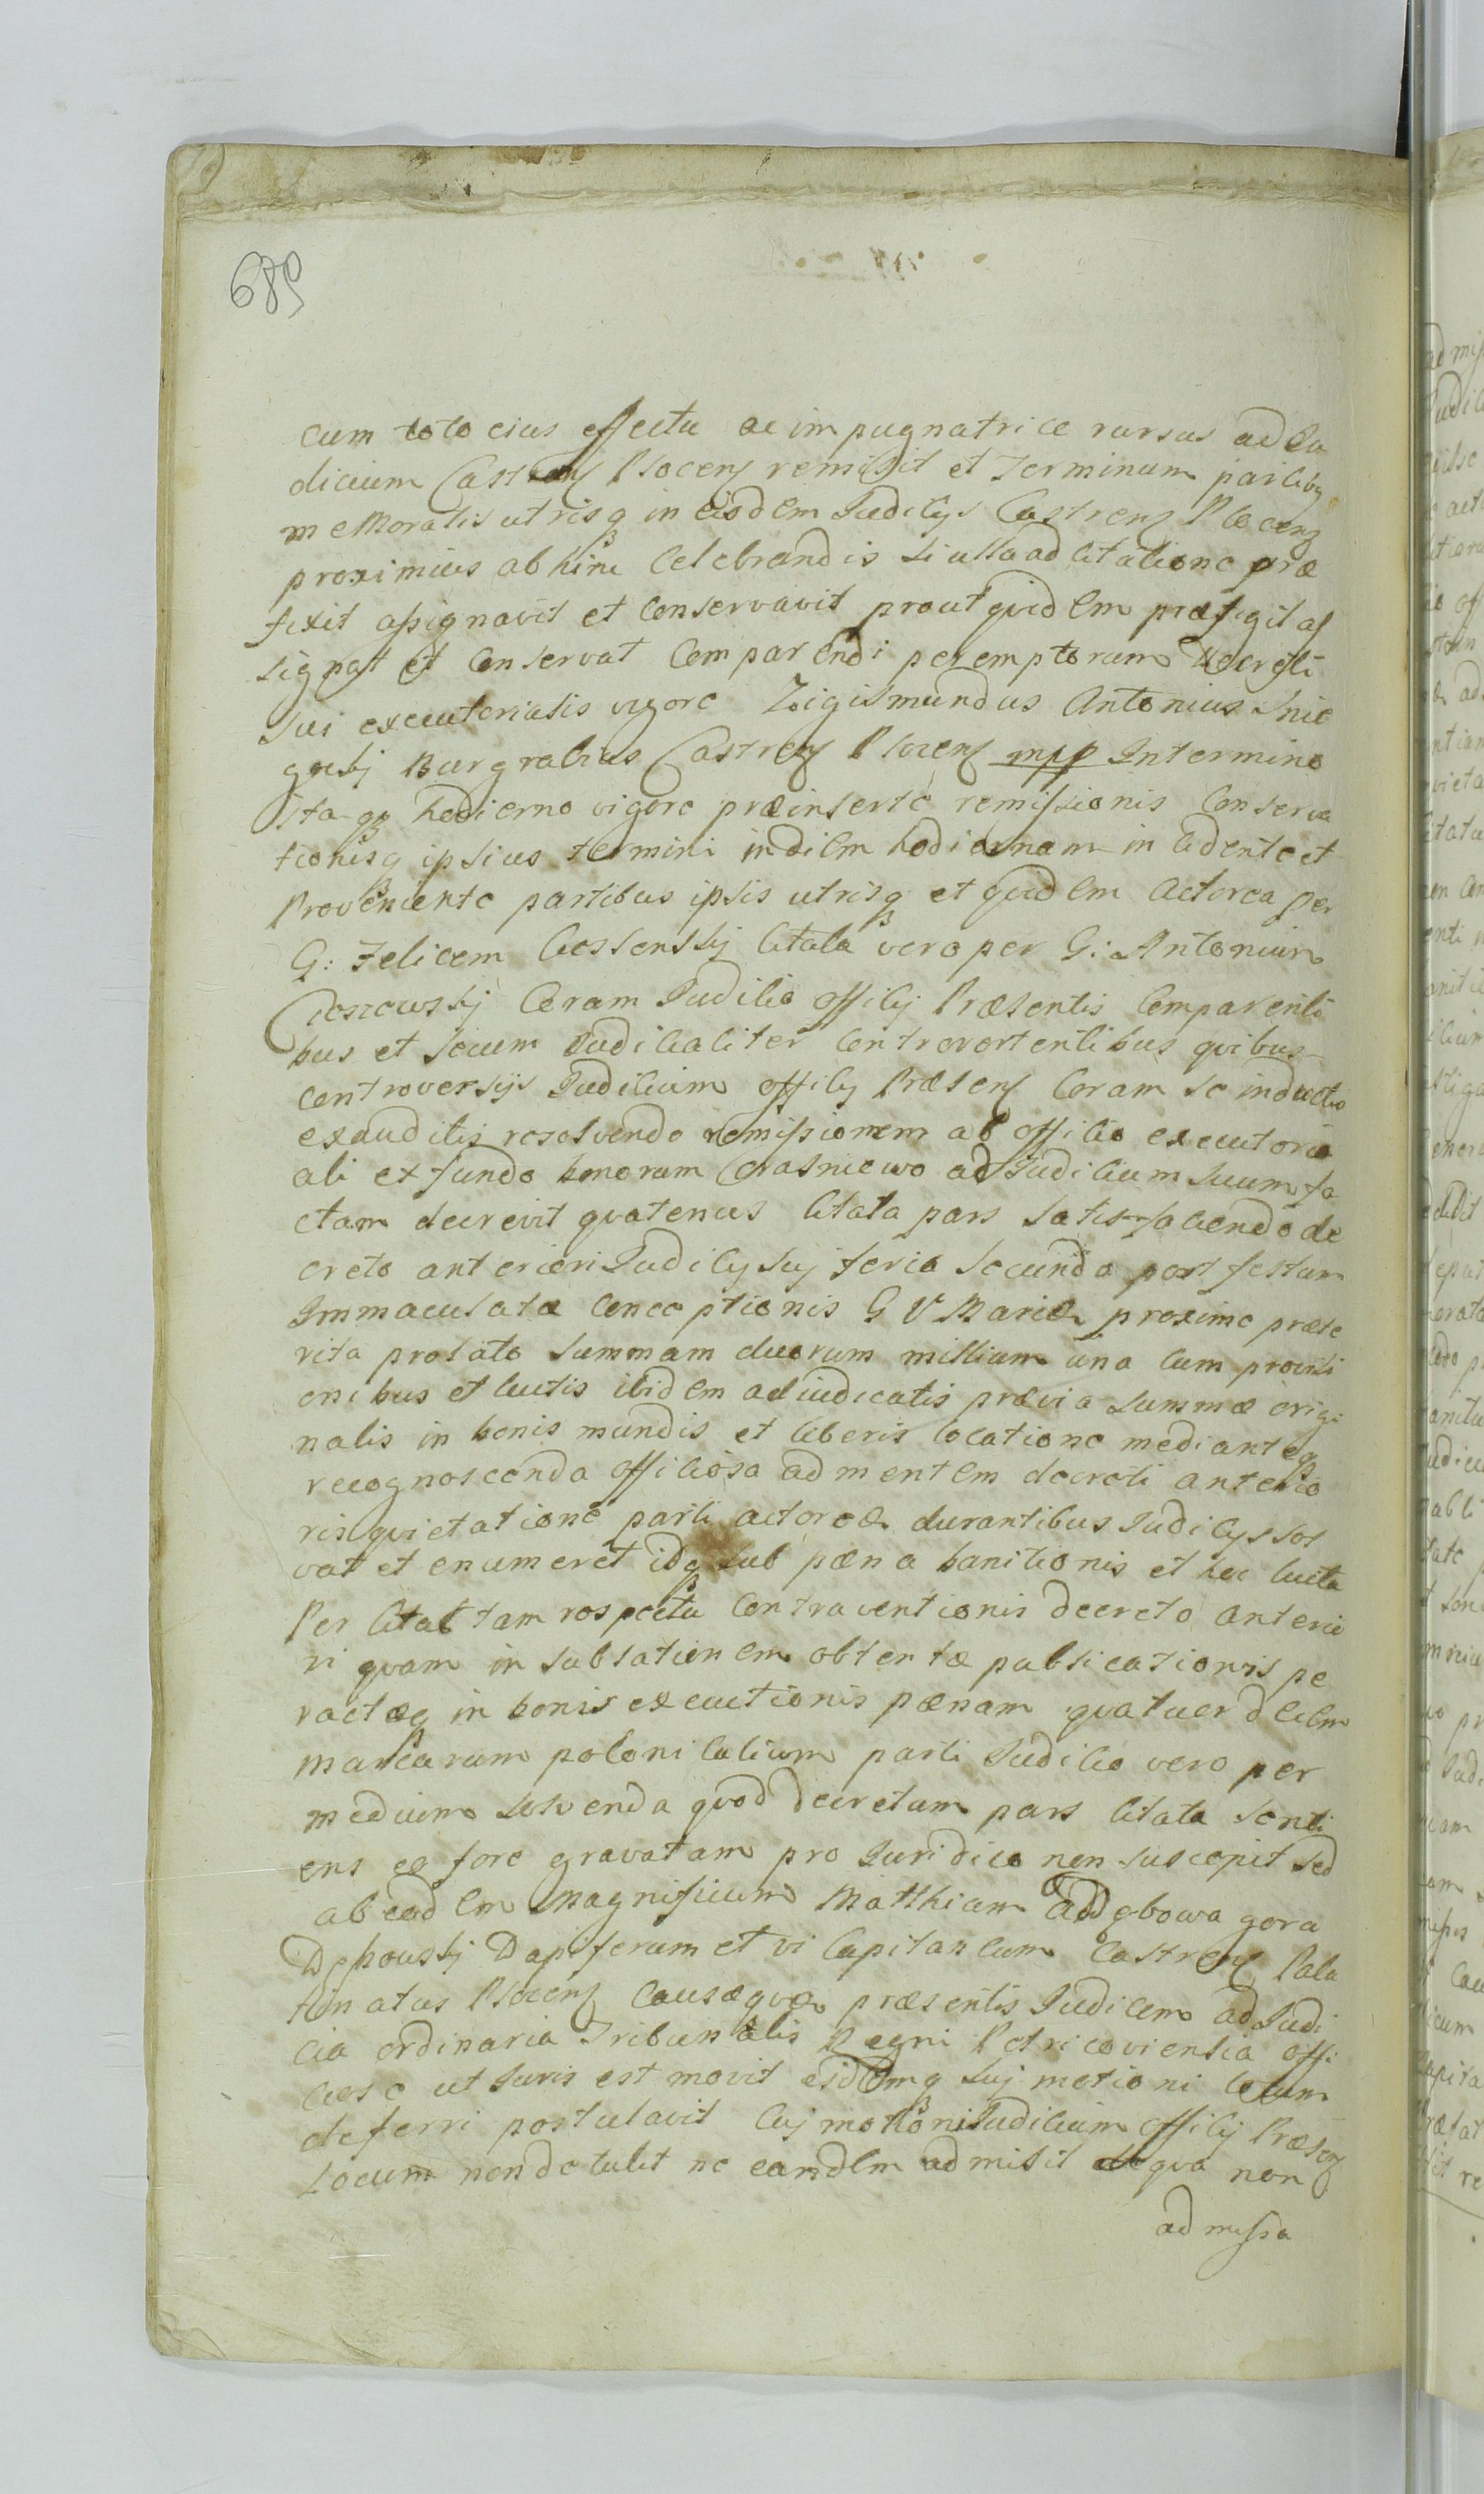 689
cum toto eius effectu ac impugnatrice rursus ad Iu
dicium Castren Plocen remisit et Terminum partibus
memoratis utrisq in eisdem Iudicijs Castren Plocen
proximius ab hinc Celebrandis si ulla ad citatione præ
fixit assignavit et conservavit prout quidem præfigit as
signat et conservat Comparendi peremptorium Decreti
sui executorialis vigore Zigismundus Antonius
Burgrabius Castren Plocen mpp In termino
itaq hodierno vigore præinsertæ remissionis Conserva
tionisq ipsius termini in diem hodiernam incidente et
Proveniente partibus ipsis utrisq et quidem Actorea per
G: Felicem citata vero per G: Antonium
Coram Iudicio officij Præsentis Comparenti
bus et secum Iudicialiter Controvertentibus quibus
controversijs Iudicium officij Præsen Coram se inductis
exauditis resolvendo remissionem ab officio executori
ali ex fundo bonorum Crasniewo ad Iudicium suum fa
ctam decrevit quatenus Citata pars satisfaciendo de
creto anteriori Iudicij sui feria secunda post festum
Immaculatæ Conceptionis B V Mariæ proxime præte
rita prolato summam duorum millium una cum proventi
onibus et luctis ibidem adiudicatis prævia summæ origi
nalis in bonis mundis et liberis locatione mediante
recognoscenda officiosa ad mentem decreti anterio
ris quietatione parti actoreæ durantibus Iudicijs sol
vat et enumeret idq sub pæna banitionis et hæc lucta
Per Citatam respectu contraventionis decreto anterio
ri quam in sublationem obtentæ publicationis pe
ractæq in bonis executionis pænam quatuordecim
marcarum polonicalium parti Iudicio vero per
medium solvenda quod decretum pars Citata senti
ens eo fore gravatam pro Iuridico non suscepit sed
ab eodem Magnificum Matthiam a Dębowa gora
Dębowskj Dapiferum et vi Capitaneum Castren Pala
tinatus Plocen Causæque præsentis Iudicem ad Iudi
cia ordinaria Tribunalis Regni Petricoviensia offi
ciose ut Iuris est movit eidemq suj motioni locum
deferri postulavit Cuj motioni Iudicium officij Præsen
Locum non detulit ne eandem admisit de qua non
admissa